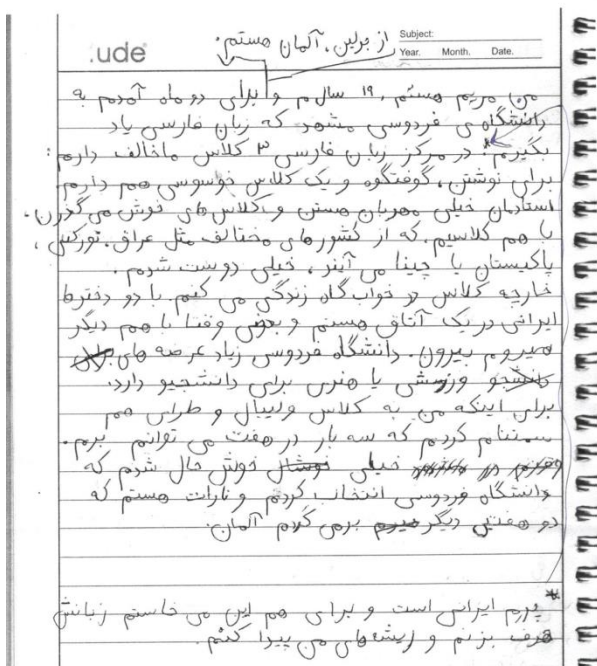 از برلین، آلمان هستم.
.ude
Subject:
Year. Month. Date.
من مریم هستم، ۱۹ سالم و برای دو ماه آمدم به
دانشگاه‌ی فردوسی مشهد که زبان فارسی یاد
بگیرم*. در مرکز زبان فارسی ۳ کلاس ماخالف دارم:
برای نوشتن، گوفتگوه و یک کلاس خوسوسی هم دارم
استادمان خیلی مهربان هستن و کلاس‌های خوش می‌گذرن.
با هم کلاسیم، که از کشورهای مختالف مثل عراق، تورکیی،
پاکیستان یا چینا می آیند، خیلی دوست شدم.
خارجه کلاس در خواب گاه زندگی می کنم. با دو دخترها
ایرانی در یک آتاق هستم و بعضی وقتا با هم دیگر
میروم بیرون. دانشگاه فردوسی زیاد عرضه های
ورزشی یا هنری برای دانشجیو دارد.
برای اینکه من به کلاس ولیبال و طرای هم
سمتنام کردم که سه بار در هفت می توانم برم.
خیلی خوش حال شدم که
دانشگاه فردوسی انتخاب کردم و نارات هستم که
دو هفتیی دیگر برمی گدم آلمان.
* پدرم ایرانی است و برای هم این می خاستم زبانش
هرف بزنم و ریشه‌های من پیدا کنم.